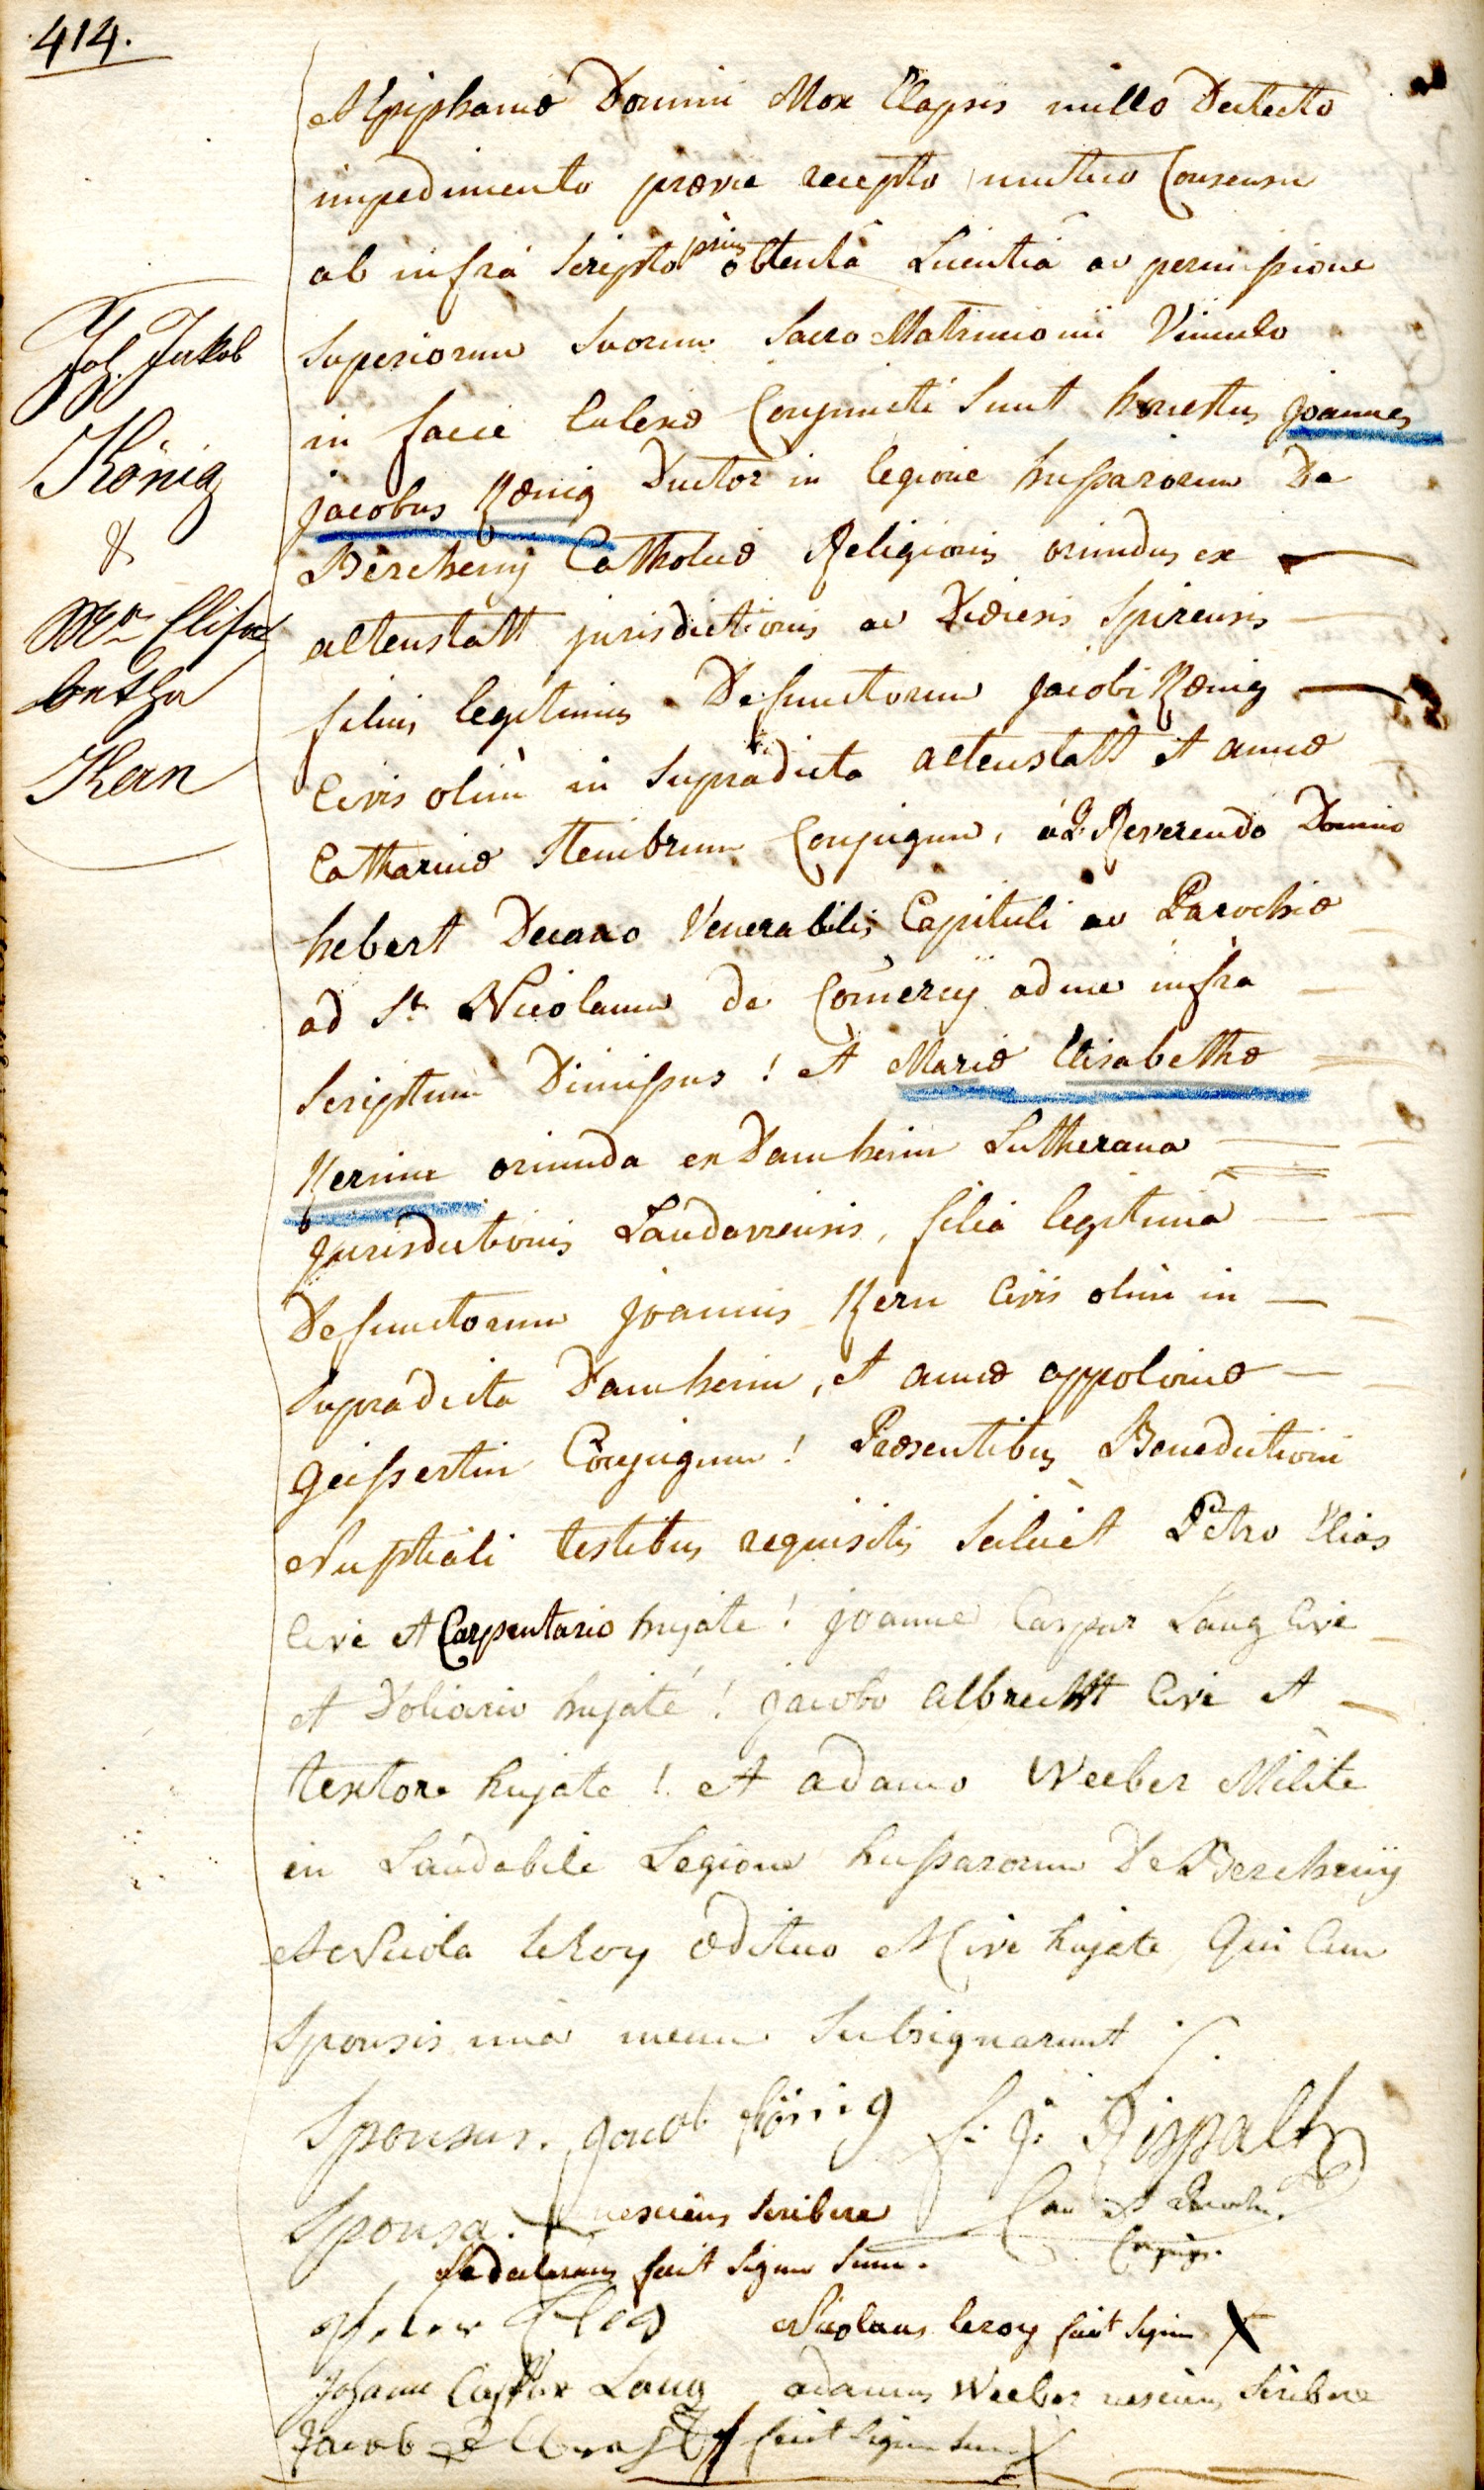 414.
Joh. Jakob
König
&
Mra Elisa
betha
Kern
et Epiphaniæ Domini Mox Elapsis nullo Detecto
impedimento prævie recepto mutuo Consensu
ab infrà scripto prius obtentâ Licentiâ ac permissione
superiorum suorum sacro Matrimonii Vinculo
in facie Eclesiæ Conjuncti sunt honestus joannes
jacobus Kœnig Ductor in legione hussarorum De
Bercheny Catholicæ Religionis oriundus ex
altenstatt jurisdictionis ac Diœcesis Spirensis
filius legitimus Defunctorum jacobi Kœnig
Civis olim in supradicta altenstatt et annæ
Catharinæ Steinbrunn Conjugum, à D. Reverendo Domino
hebert Decano Venerabilis Capituli ac Parochiæ
ad St. Nicolaum de Comercÿ ad me infra
scriptum Dimissus! et Mariæ Elisabethæ
Kernin oriunda ex Damheim Lutherana
jurisdictionis Landaviensis, filia legitima
Defunctorum joannis Kern Civis olim in
supradicta Damheim, et annæ appoloniæ
geissertin Conjugum! Præsentibus Benedictioni
Nuptiali testibus requisitis scilicèt Petro Elias
Cive et Carpentario hujate! joanne Caspar Lang Cive
et Doliario hujate! jacobo albrechtt Cive et
textore hujate! et adamo Weeber Milite
in Laudabile Legione hussarorum De Berchenÿ
et Nicola leRoy ædituo et Cive hujate, qui Cum
sponsis unà mecum subsignarunt
Sponsus. jacob König f: j: Rispalth
Sponsa. nesciens scribere Can et
fecit signum suum.
Elias Nicolaus leroy fecit signum X
Johann Caspar Lang adamus Weeber nesciens scribere
Jacob fecit signum suum X